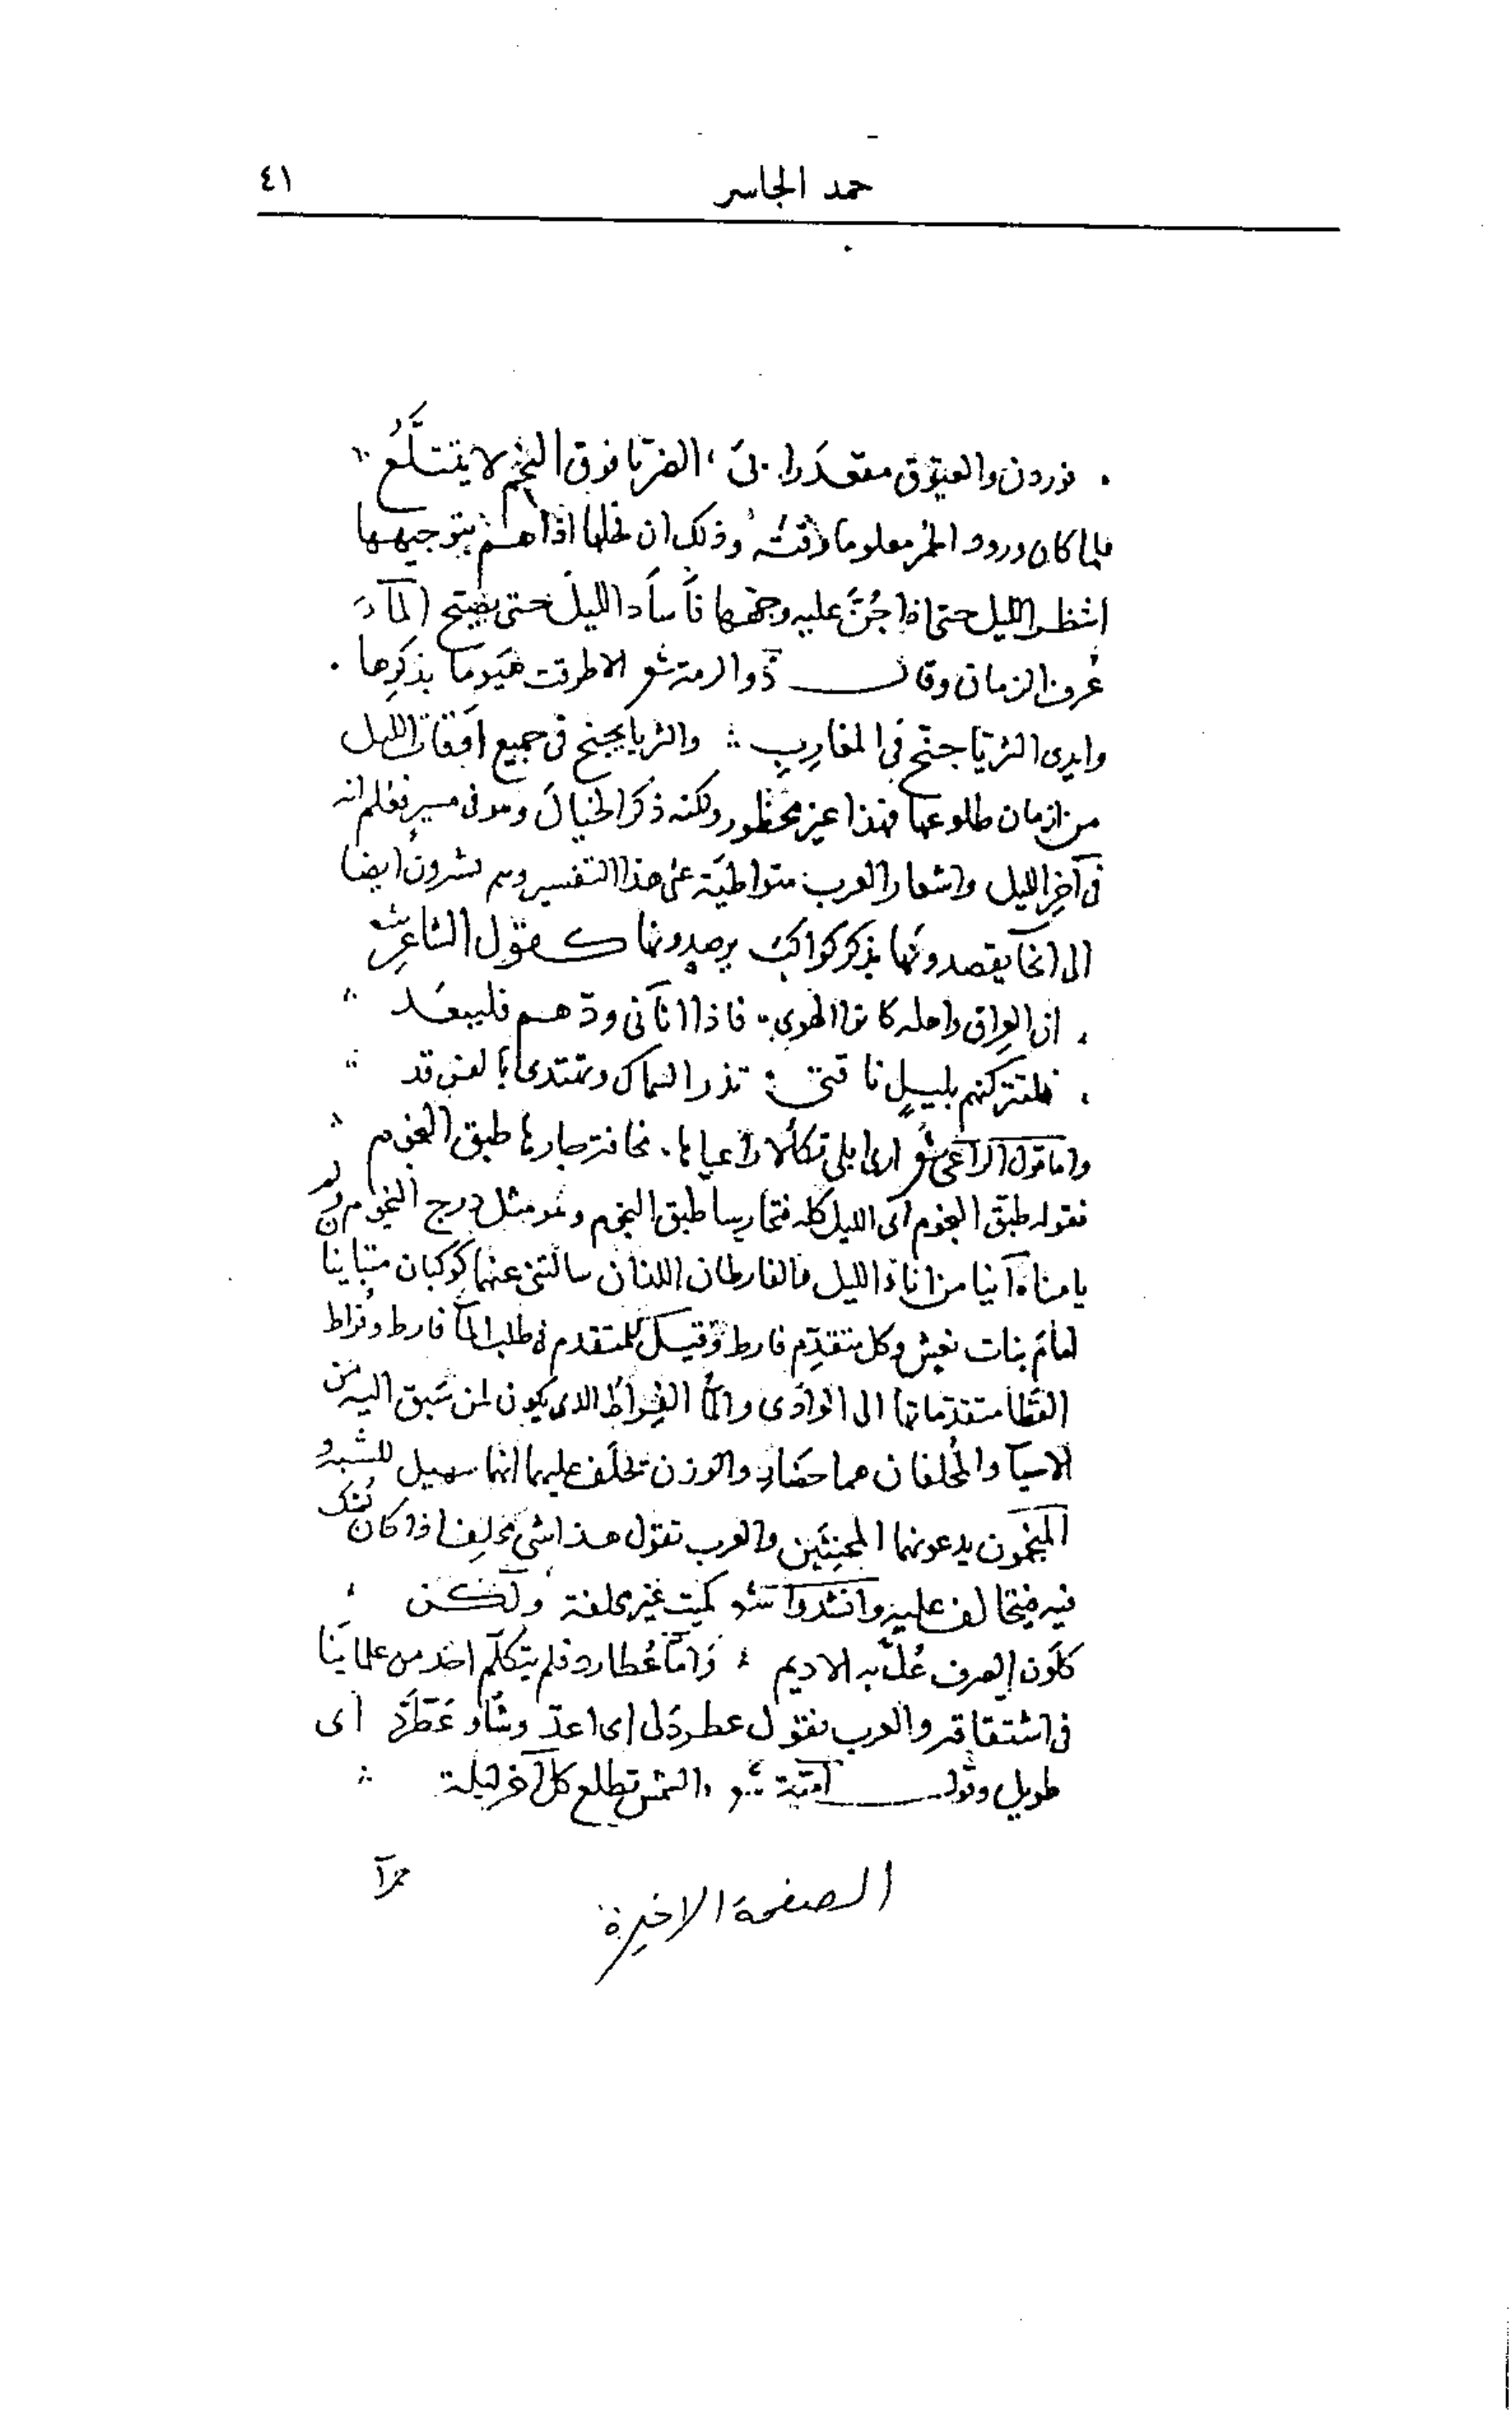 حمد الجاسر ٤١
فوردن والعيوق مقعد را بئ الضربا فوق النجم لا يتتلّع
فلما كان ورود الحمر معلوما وقته وذلك ان فحلها اذا هم بتوجيهها
انتظر الليل حتى اذا جنّ عليه وجهها فأسأد الليل حتى يصبح الماء
عرف الزمان وقال ذو الرمة شعر الا طرقت هيوما بذكرها
وايدى الثريّا جنّح فى المغارب والثريا يجنح فى جميع اوقات الليل
من ازمان طلوعها فهذا غير محظور ولكنه ذكر الخيال وهو فى مسيره فعلم انه
فى آخر الليل واشعار العرب متواطية على هذا التفسير وهم يشرون ايضا
الى انحا يقصدونها بذكر كواكب يرصدونها كقول الشاعر
ان العراق واهله كانوا الهوى فاذا انآنى ودّهم فليبعد
فلتتركنهم بليل ناقتى تذر السماك وتهتدى بالفرقد
واما قول الراعى شعر ارى ابلى تكالأ راعياها مخافة جارها طبق النجوم
فقوله طبق النجوم اى الليل كله فتحارسا طبق النجم وهو مثل درج النجوم
يا هناه آنيا من اناء الليل فالفارطان اللذان سالتنى عنهما كوكبان متباينا
امام بنات نعش وكل متقدّم فارط وقيل للمتقدم فى طلب الماء فارط وفراط
القطا متقدماتها الى الوادى والماء الفراط الذى يكون لمن سبق اليه من
الاحياء والمحلفان هما حضار والوزن تحلف عليهما انهما سهيل للشبه و
المنجمون يدعونهما المحنثين والعرب تقول هذا شئ محلف اذا كان يشك
فيه فيتحالف عليه وانشدوا شعر كميت غير محلفة ولكن
كلون الصرف علّ به الاديم وامّا عطارد فلم يتكلّم احد من علماينا
فى اشتقاقه والعرب تقول عطرد لى اى اعدّ وشأو عطرّد اى
طويل وقول امية شعر والشمس تطلع كل آخر ليلة
حمرآ
الصفحة الاخيرة